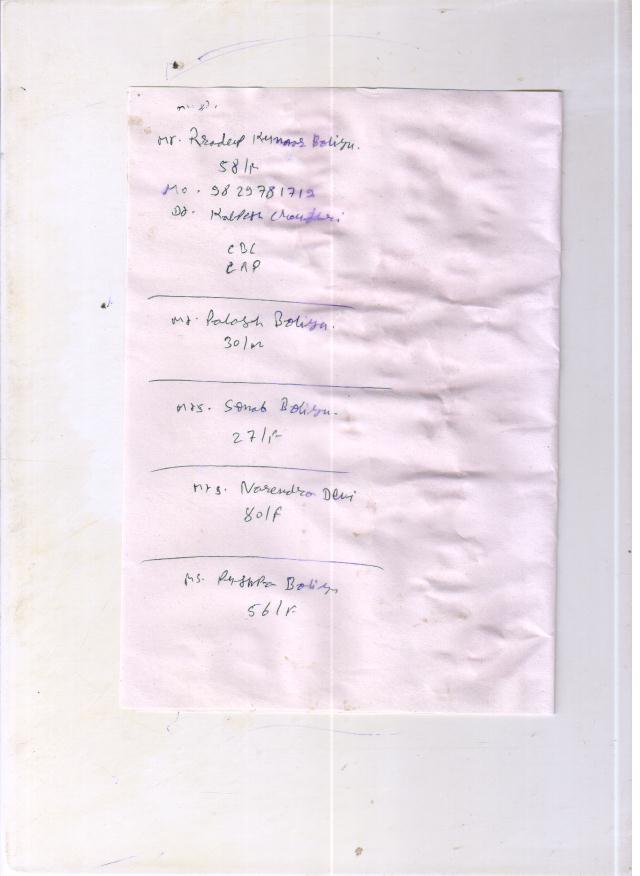 Mr. Pradeep Kumar Boliya.
58/M
Mo. 9829781719
Dr. Kalpesh Choudhari
CBC
CRP
Mr. Palash Boliya.
30/M
Mrs. Sonab Boliya.
27/F
Mrs. Narendra Devi
80/F
Ms. Pushpa Boliya
56/F